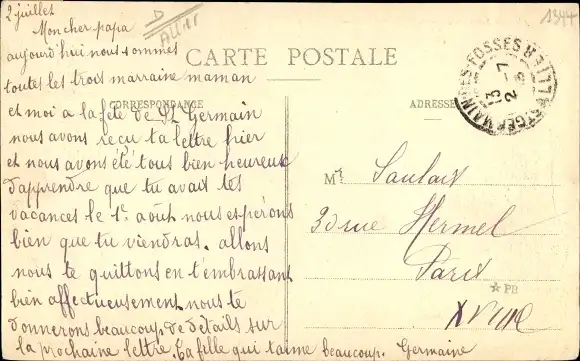 2 juillet
Mon cher papa
aujourd'hui nous sommes
toutes les trois marraine maman
et moi a la fête de St Germain
nous avons reçu ta lettre hier
et nous avons été tous bien heureux
d'apprendre que tu avait tes
vacances le 1er août nous espérons
bien que tu viendras. allons
nous te quittons en t'embrassant
bien affectueusement nous te
donnerons beaucoup de détails sur
la prochaine lettre. Ta fille qui t'aime beaucoup. Germaine
CARTE POSTALE
CORRESPONDANCE
ADRESSE
Mr Saulais
30 rue Hermel
Paris
XVIIIe
PB
ALLIER
1344
ST GERMAIN DES FOSSES
ALLIER
13 -7